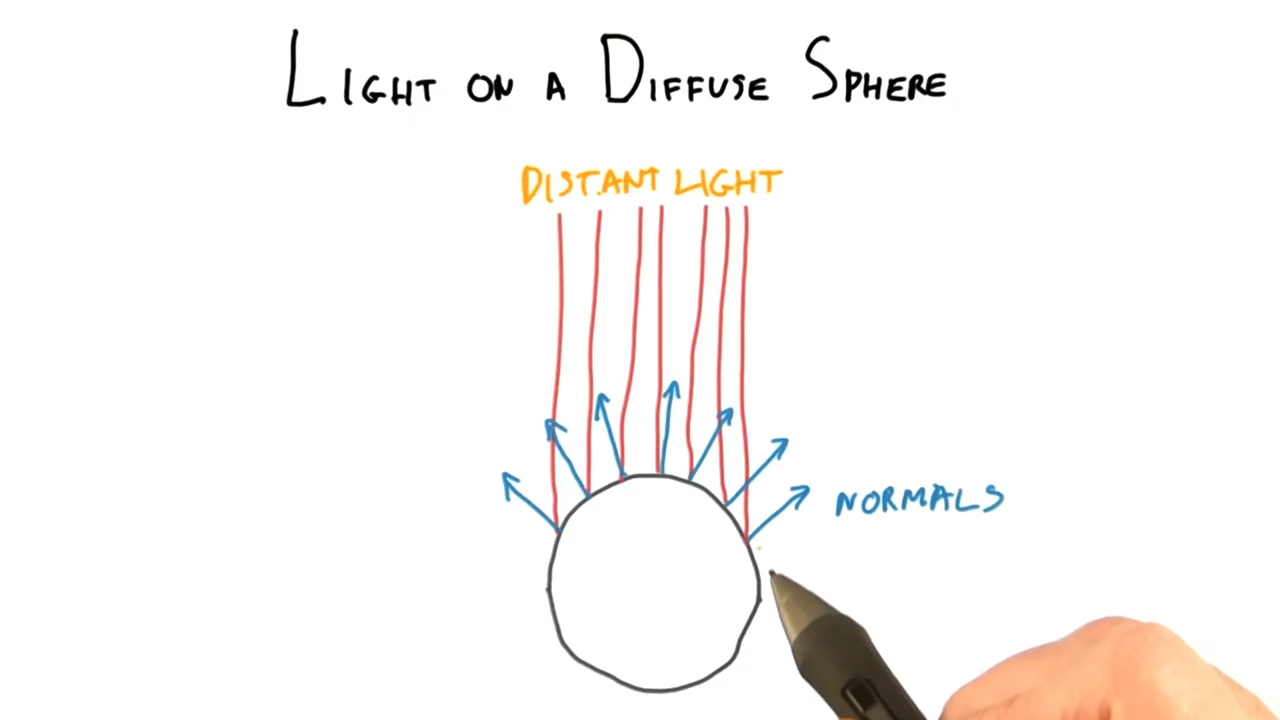 LIGHT ON A DIFFUSE SPHERE
DISTANT LIGHT
NORMALS